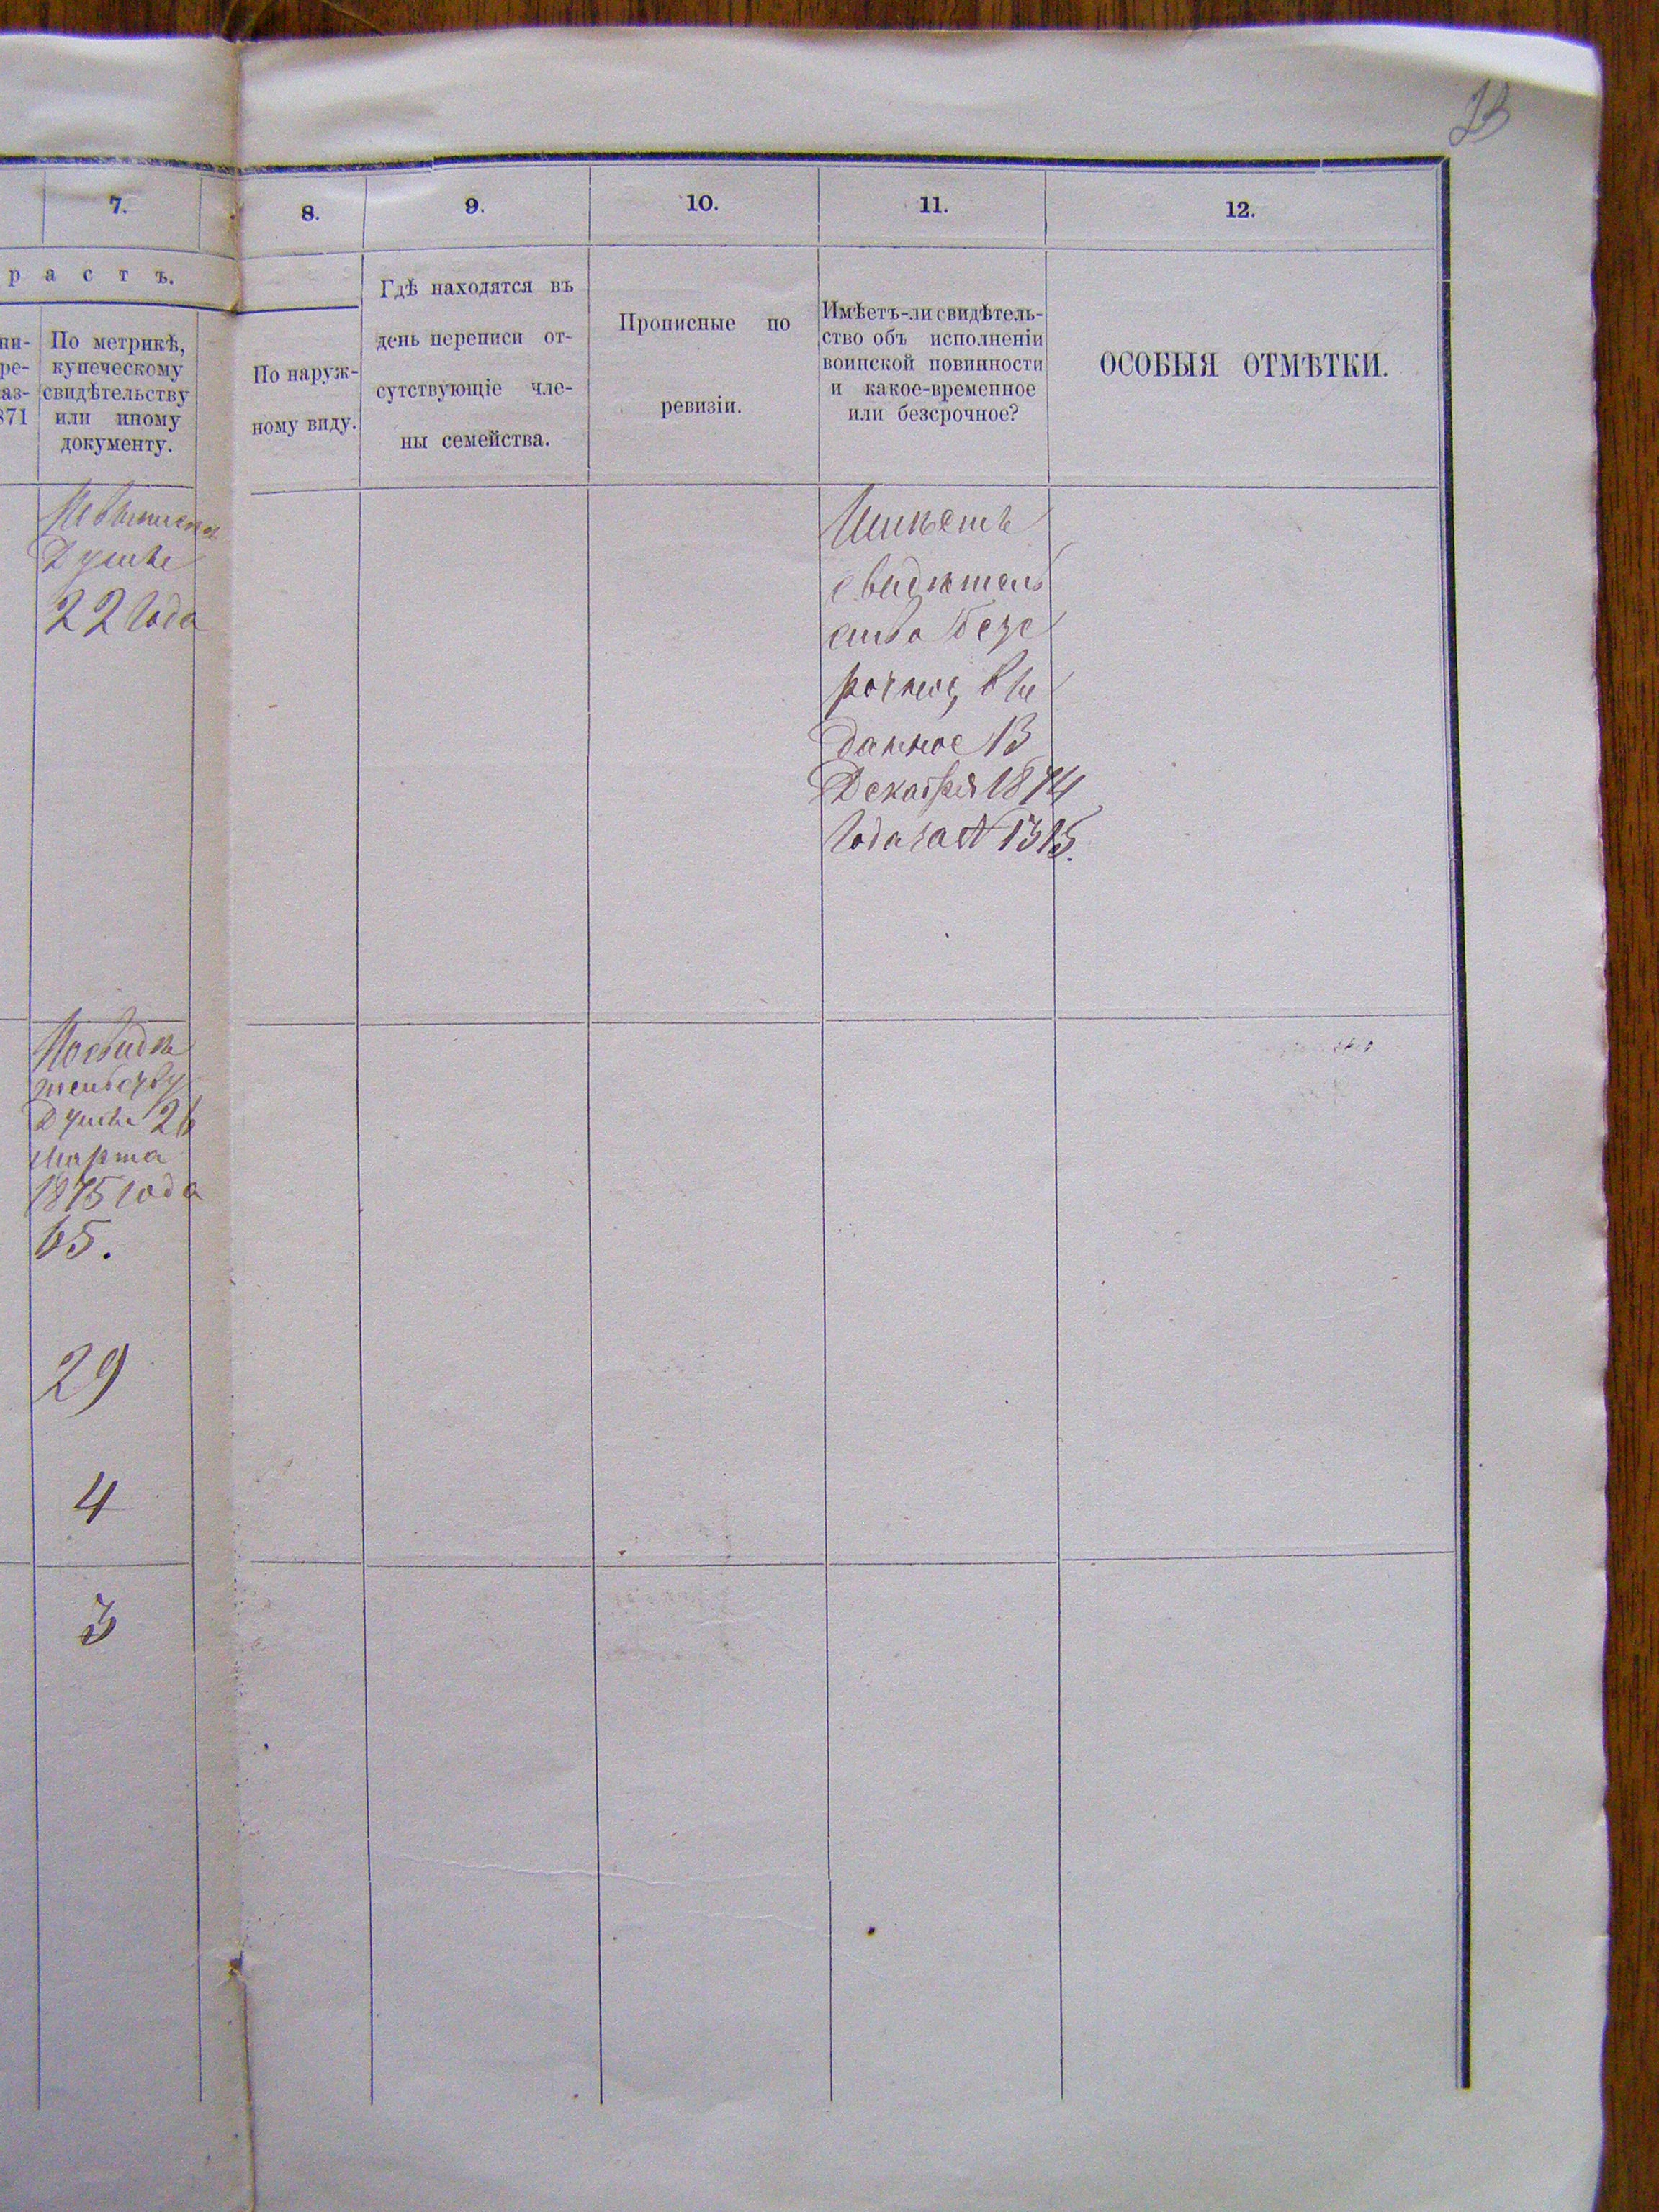 23
7.
8.
9.
10.
11.
12.
растъ.
ни-
ре-
аз-
871
По метрикѣ,
купеческому
свидѣтельству
или иному
документу.
По наруж-
ному виду.
Гдѣ находятся въ
день переписи от-
сутствующіе чле-
ны семейства.
Прописные по
ревизіи.
Имѣетъ-ли свидѣтель-
ство объ исполненіи
воинской повинности
и какое-временное
или безсрочное?
ОСОБЫЯ ОТМѢТКИ.
22 года
Имѣетъ
свидѣтель
ство безс
рочное, вы
данное 13
Декабря 1874
года за № 1315.
По свидѣ
тельству
26
Марта
1875 года
65.
29
4
3